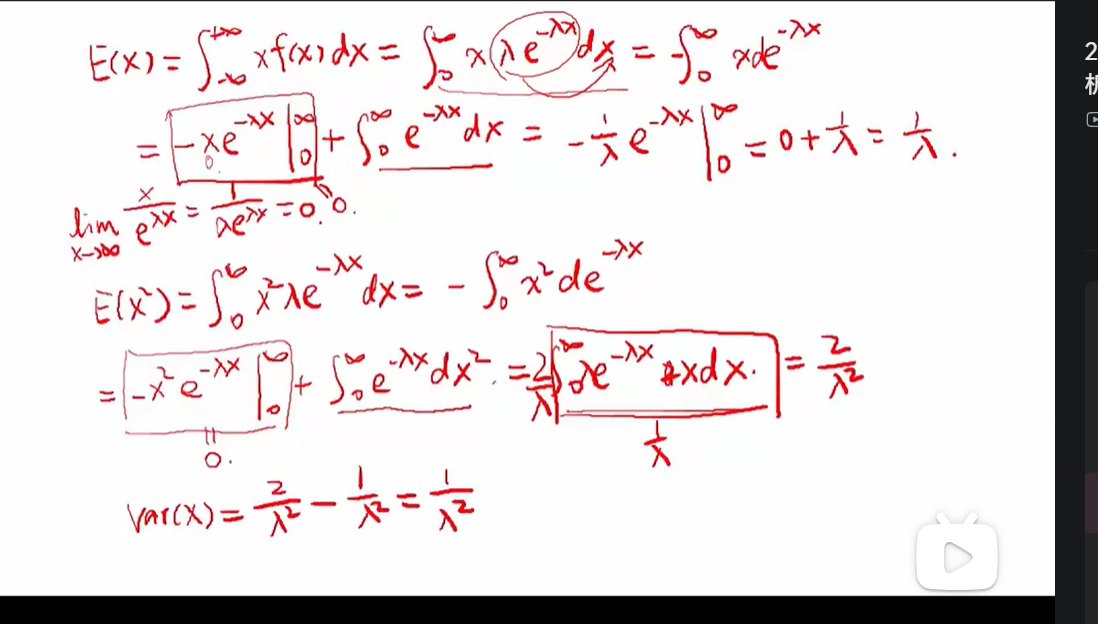 E(X) = ∫_{-∞}^{+∞} x f(x) dx = ∫_0^∞ x (λe^{-λx}) dx = -∫_0^∞ x de^{-λx}
= -xe^{-λx} |_0^∞ + ∫_0^∞ e^{-λx} dx = -1/λ e^{-λx} |_0^∞ = 0 + 1/λ = 1/λ .
lim_{x→∞} x/e^{λx} = 1/λe^{λx} = 0. 0.
E(X²) = ∫_0^∞ x²λe^{-λx} dx = - ∫_0^∞ x² de^{-λx}
= -x²e^{-λx} |_0^∞ + ∫_0^∞ e^{-λx} dx². = 2/λ ∫_0^∞ λe^{-λx} x dx. = 2/λ²
0.
1/λ
Var(X) = 2/λ² - 1/λ² = 1/λ²
2